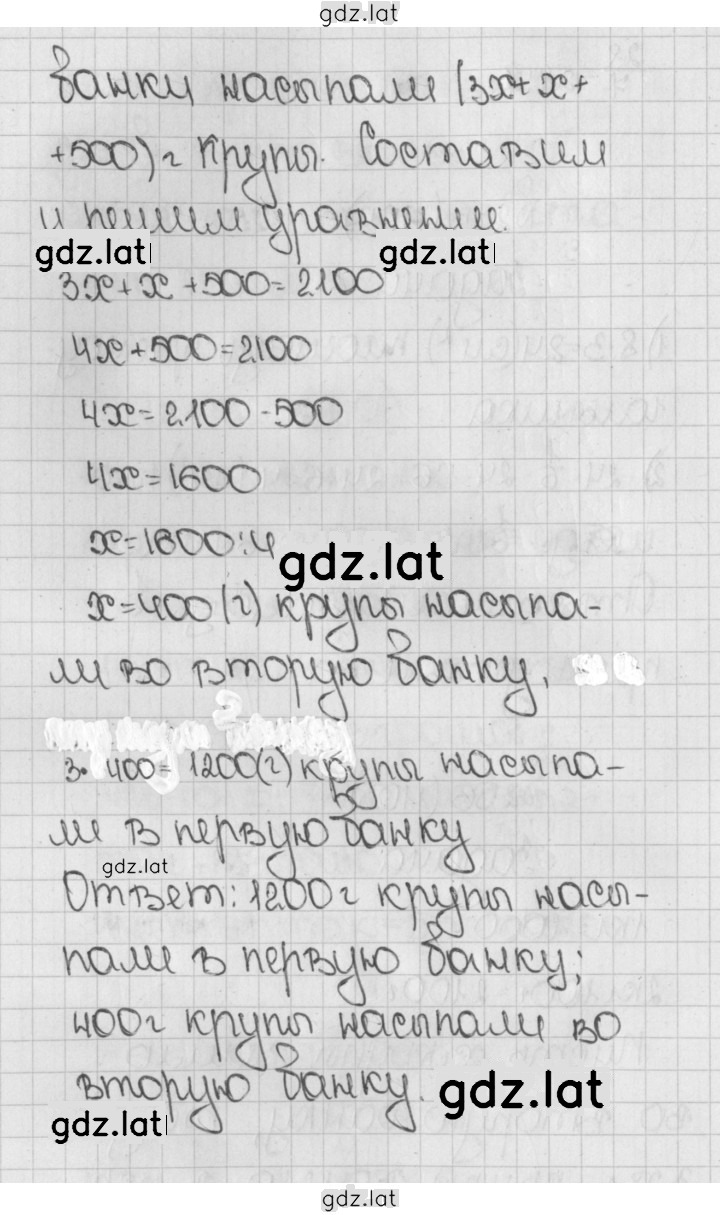 gdz.lat
банку насыпали (3x+x+
+500) г крупы. Составим
и решим уравнение.
gdz.lat gdz.lat
3x+x+500=2100
4x+500=2100
4x=2100-500
4x=1600
x=1600:4
gdz.lat
x=400 (г) крупы насыпа-
ли во вторую банку,
3·400=1200(г) крупы насыпа-
ли в первую банку
gdz.lat
Ответ: 1200г крупы насы-
пали в первую банку;
400г крупы насыпали во
вторую банку.
gdz.lat
gdz.lat
gdz.lat